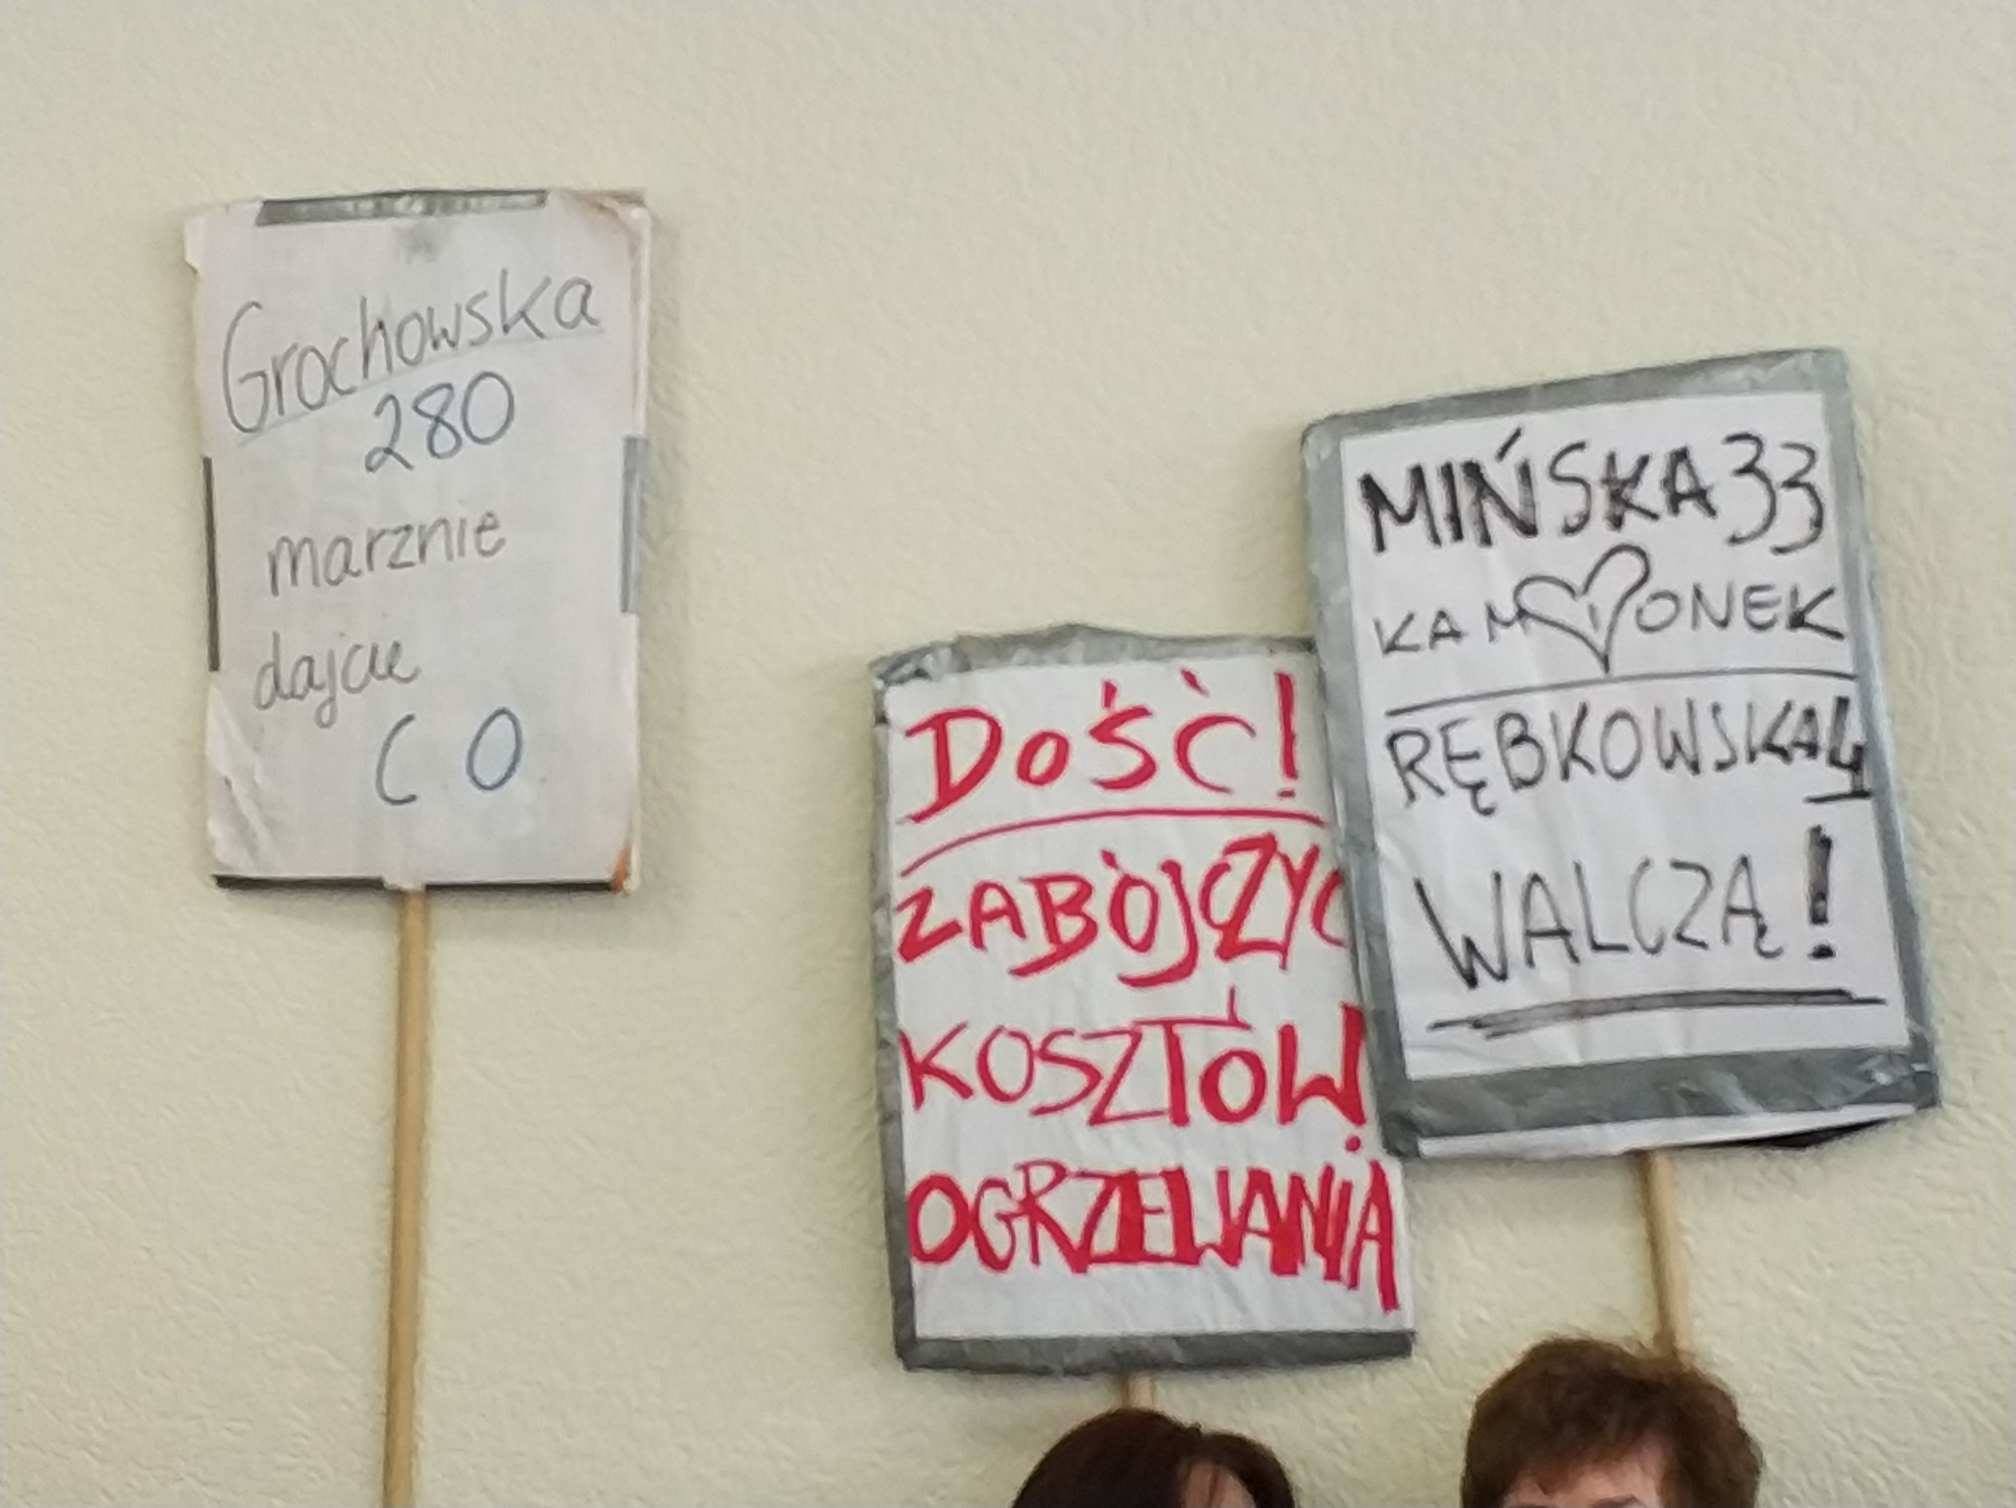 Grochowska
280
marznie
dajcie
C O
DOŚĆ!
ZABÓJCZYC
KOSZTÓW
OGRZEWANIA
MIŃSKA 33
KAMIONEK
RĘBKOWSKA 4
WALCZĄ!